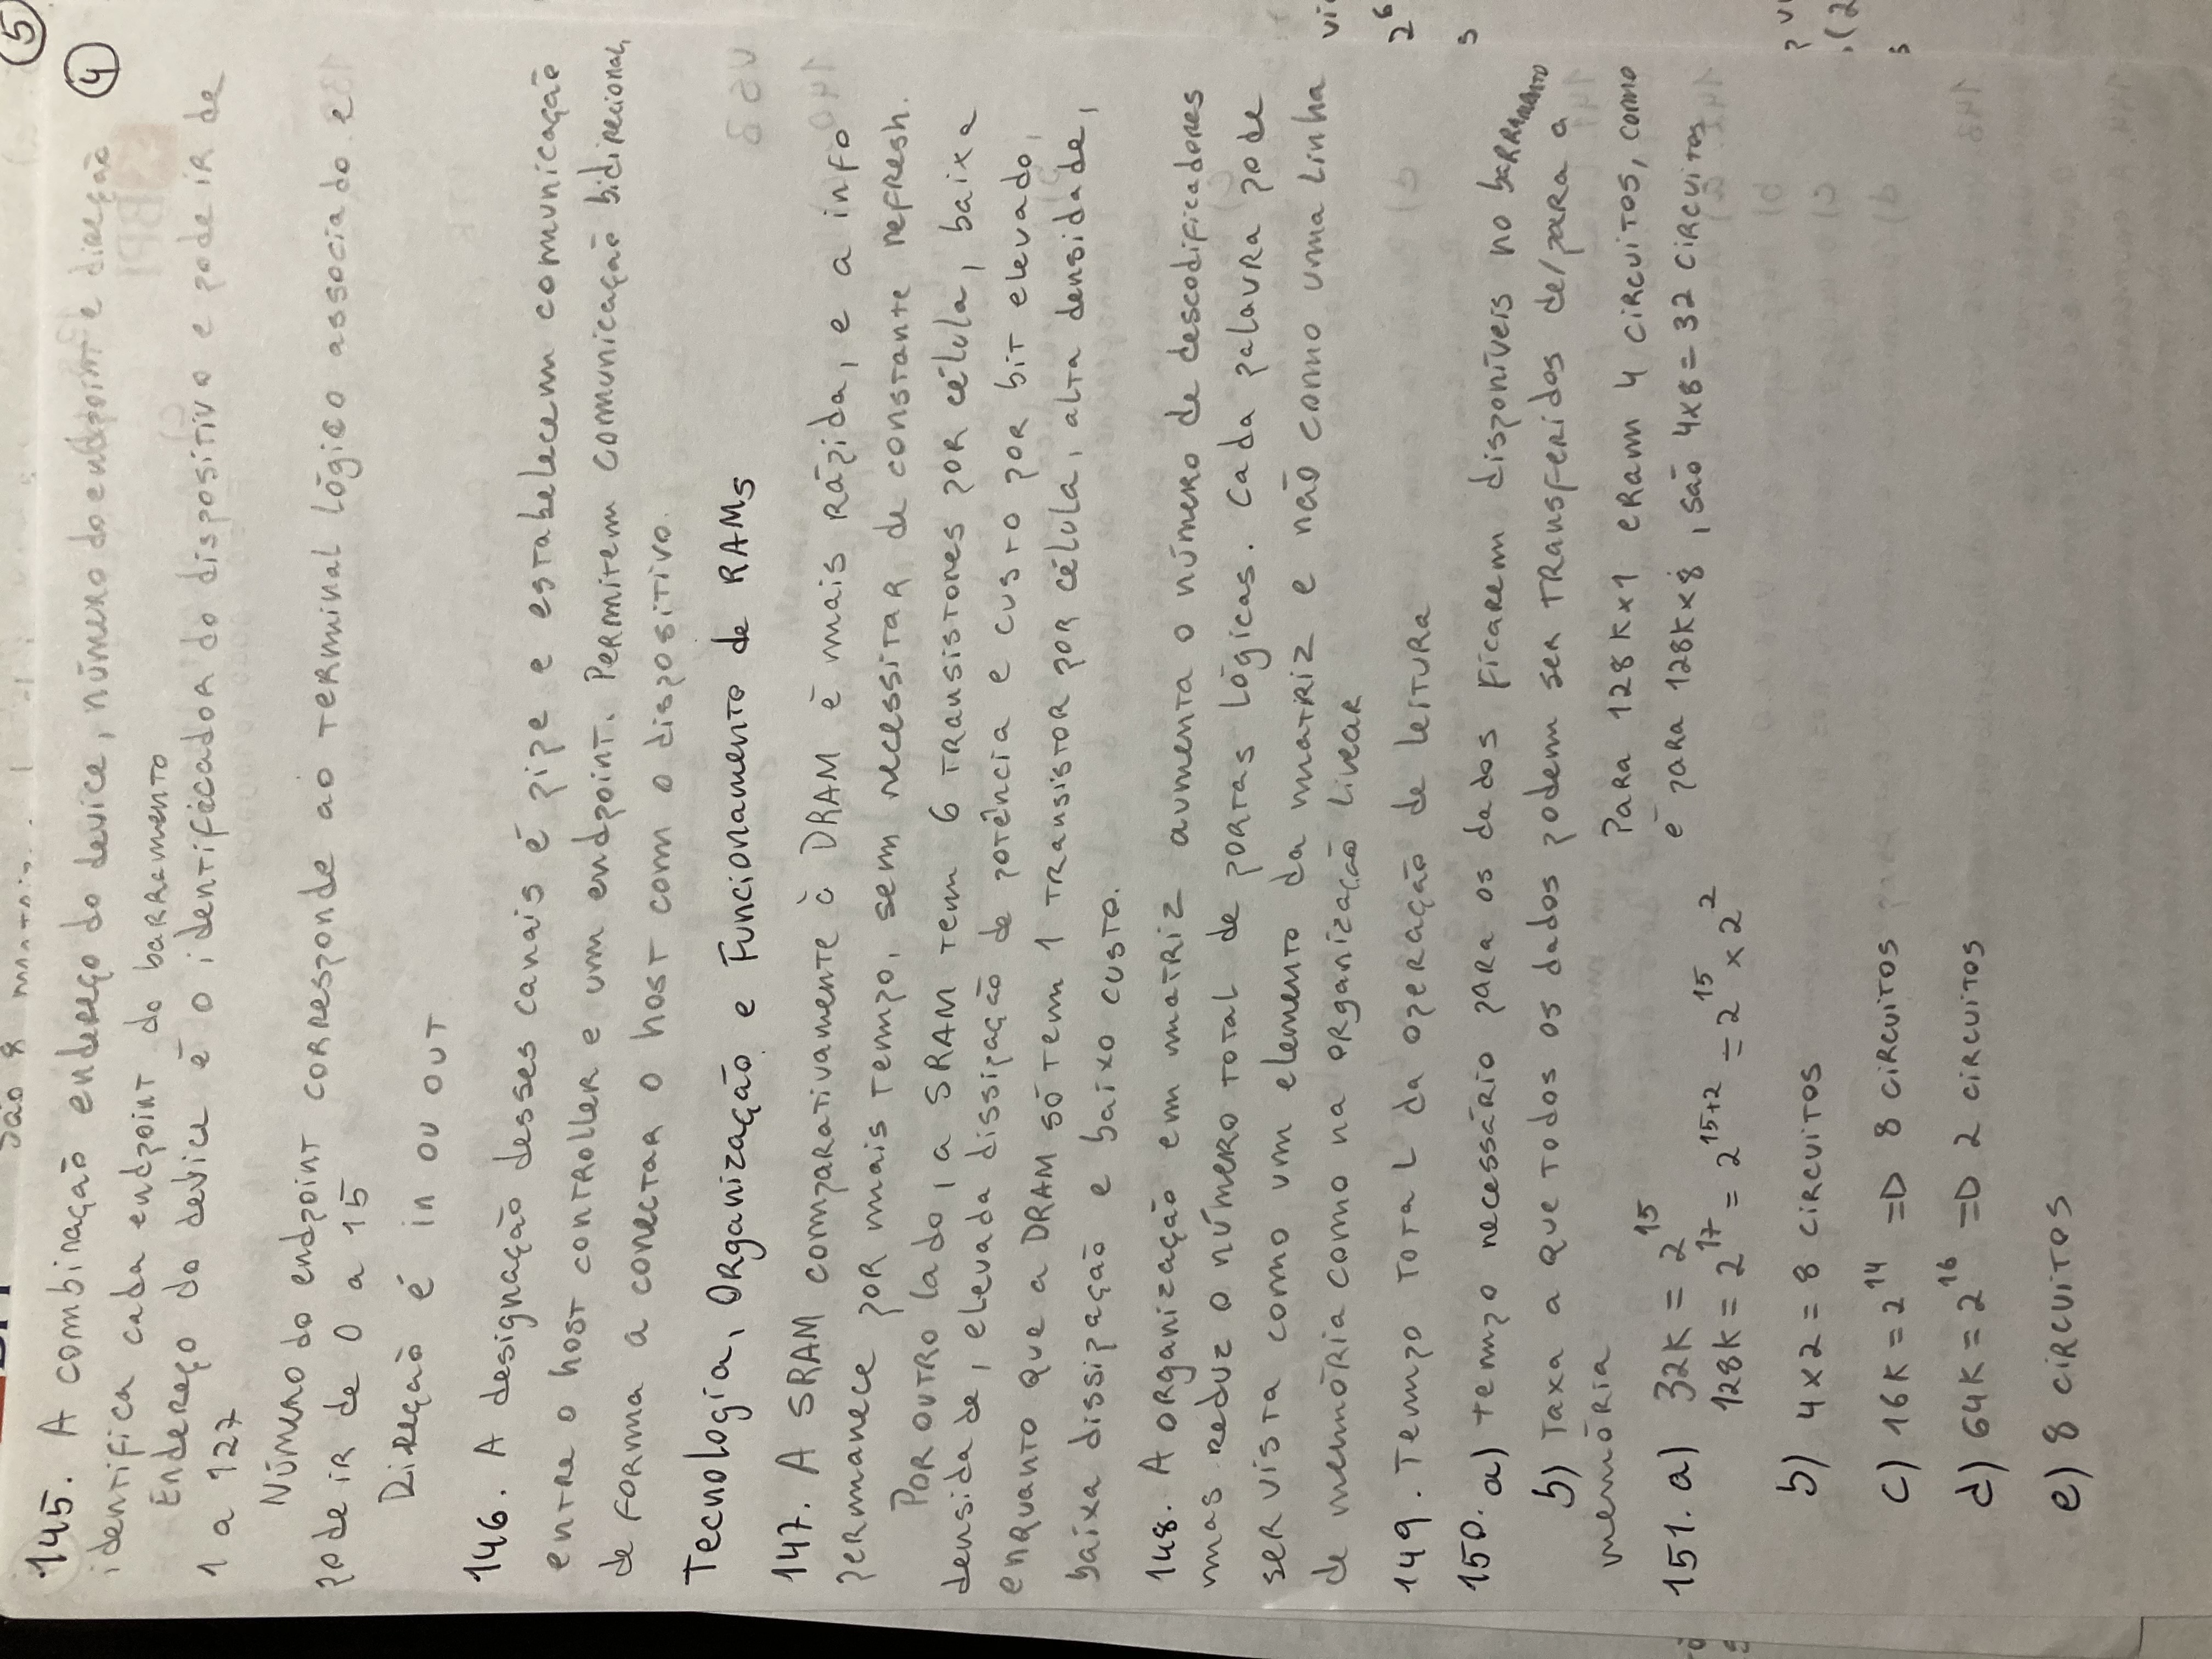 São 8
5
145. A combinação endereço do device, número do endpoint e direção
4
identifica cada endpoint do barramento
Endereço do device é o identificador do dispositivo e pode ir de
1 a 127
Número do endpoint corresponde ao terminal lógico associado e
pode ir de 0 a 15
Direção é in ou out
146. A designação desses canais é pipe e estabelecem comunicação
entre o host controller e um endpoint. Permitem comunicação bidirecional,
de forma a conectar o host com o dispositivo.
Tecnologia, Organização e Funcionamento de RAMs
147. A SRAM comparativamente à DRAM é mais rápida, e a info
permanece por mais tempo, sem necessitar de constante refresh.
Por outro lado, a SRAM tem 6 transistores por célula, baixa
densidade, elevada dissipação de potência e custo por bit elevado,
enquanto que a DRAM só tem 1 transistor por célula, alta densidade,
baixa dissipação e baixo custo.
148. A organização em matriz aumenta o número de descodificadores
mas reduz o número total de portas lógicas. Cada palavra pode
ser vista como um elemento da matriz e não como uma linha
de memória como na organização linear
149. Tempo total da operação de leitura
150. a) tempo necessário para os dados ficarem disponíveis no barramento
b) Taxa a que todos os dados podem ser transferidos de/para a
memória
Para 128K×1 eram 4 circuitos, como
é para 128K×8, são 4×8 = 32 circuitos
151. a) 32K = 2^15
128K = 2^17 = 2^15+2 = 2^15 × 2^2
b) 4×2 = 8 circuitos
c) 16K = 2^14 => 8 circuitos
d) 64K = 2^16 => 2 circuitos
e) 8 circuitos